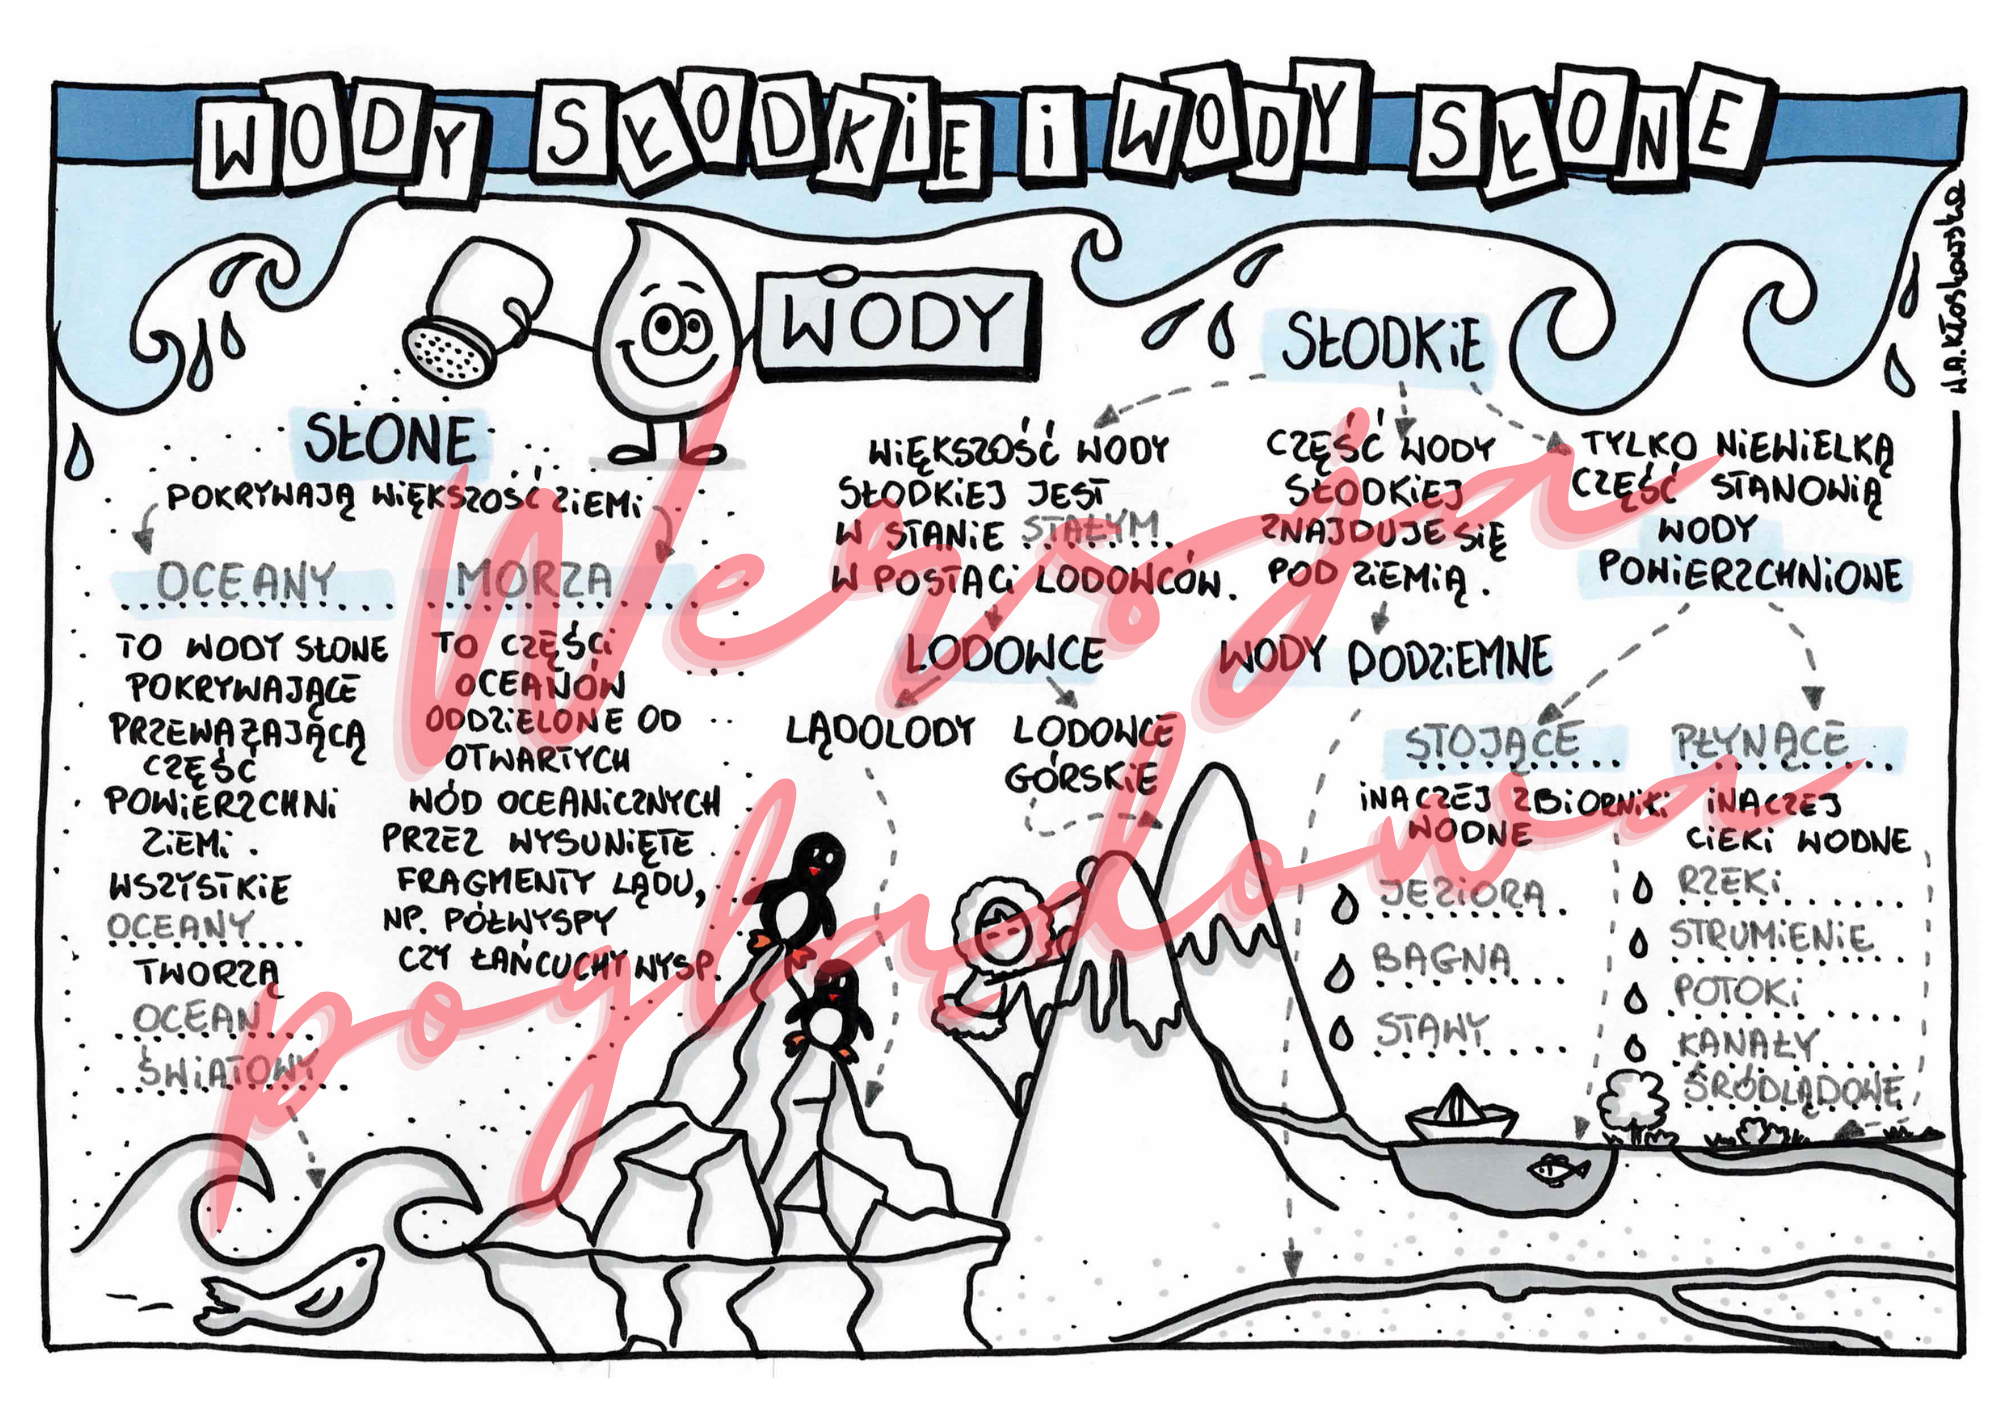 WODY SŁODKIE i WODY SŁONE
H.A.Kłosłowska
WODY
SŁONE
POKRYWAJĄ WIĘKSZOŚĆ ZIEMI
OCEANY
TO WODY SŁONE
POKRYWAJĄCE
PRZEWAŻAJĄCĄ
CZĘŚĆ
POWIERZCHNI
ZIEMI.
WSZYSTKIE
OCEANY
TWORZĄ
OCEAN
ŚWIATOWY
MORZA
TO CZĘŚCI
OCEANÓW
ODDZIELONE OD
OTWARTYCH
WÓD OCEANICZNYCH
PRZEZ WYSUNIĘTE
FRAGMENTY LĄDU,
NP. PÓŁWYSPY
CZY ŁAŃCUCHY WYSP.
SŁODKIE
WIĘKSZOŚĆ WODY
SŁODKIEJ JEST
W STANIE STAŁYM
W POSTACI LODOWCÓW.
LODOWCE
LĄDOLODY
LODOWCE
GÓRSKIE
CZĘŚĆ WODY
SŁODKIEJ
ZNAJDUJE SIĘ
POD ZIEMIĄ.
WODY PODZIEMNE
TYLKO NIEWIELKĄ
CZĘŚĆ STANOWIĄ
WODY
POWIERZCHNIONE
STOJĄCE
INACZEJ ZBIORNIKI
WODNE
JEZIORA
BAGNA
STAWY
PŁYNĄCE
INACZEJ
CIEKI WODNE
RZEKI
STRUMIENIE
POTOKI
KANAŁY
ŚRÓDLĄDOWE
Wersja
poglądowa